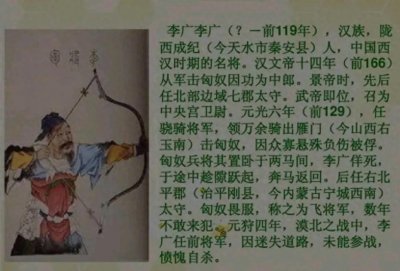 李广李广（？－前119年），汉族，陇
西成纪（今天水市秦安县）人，中国西
汉时期的名将。汉文帝十四年（前166）
从军击匈奴因功为中郎。景帝时，先后
任北部边域七郡太守。武帝即位，召为
中央宫卫尉。元光六年（前129），任
骁骑将军，领万余骑出雁门（今山西右
玉南）击匈奴，因众寡悬殊负伤被俘。
匈奴兵将其置卧于两马间，李广佯死，
于途中趁隙跃起，奔马返回。后任右北
平郡（治平刚县，今内蒙古宁城西南）
太守。匈奴畏服，称之为飞将军，数年
不敢来犯。元狩四年，漠北之战中，李
广任前将军，因迷失道路，未能参战，
愤愧自杀。